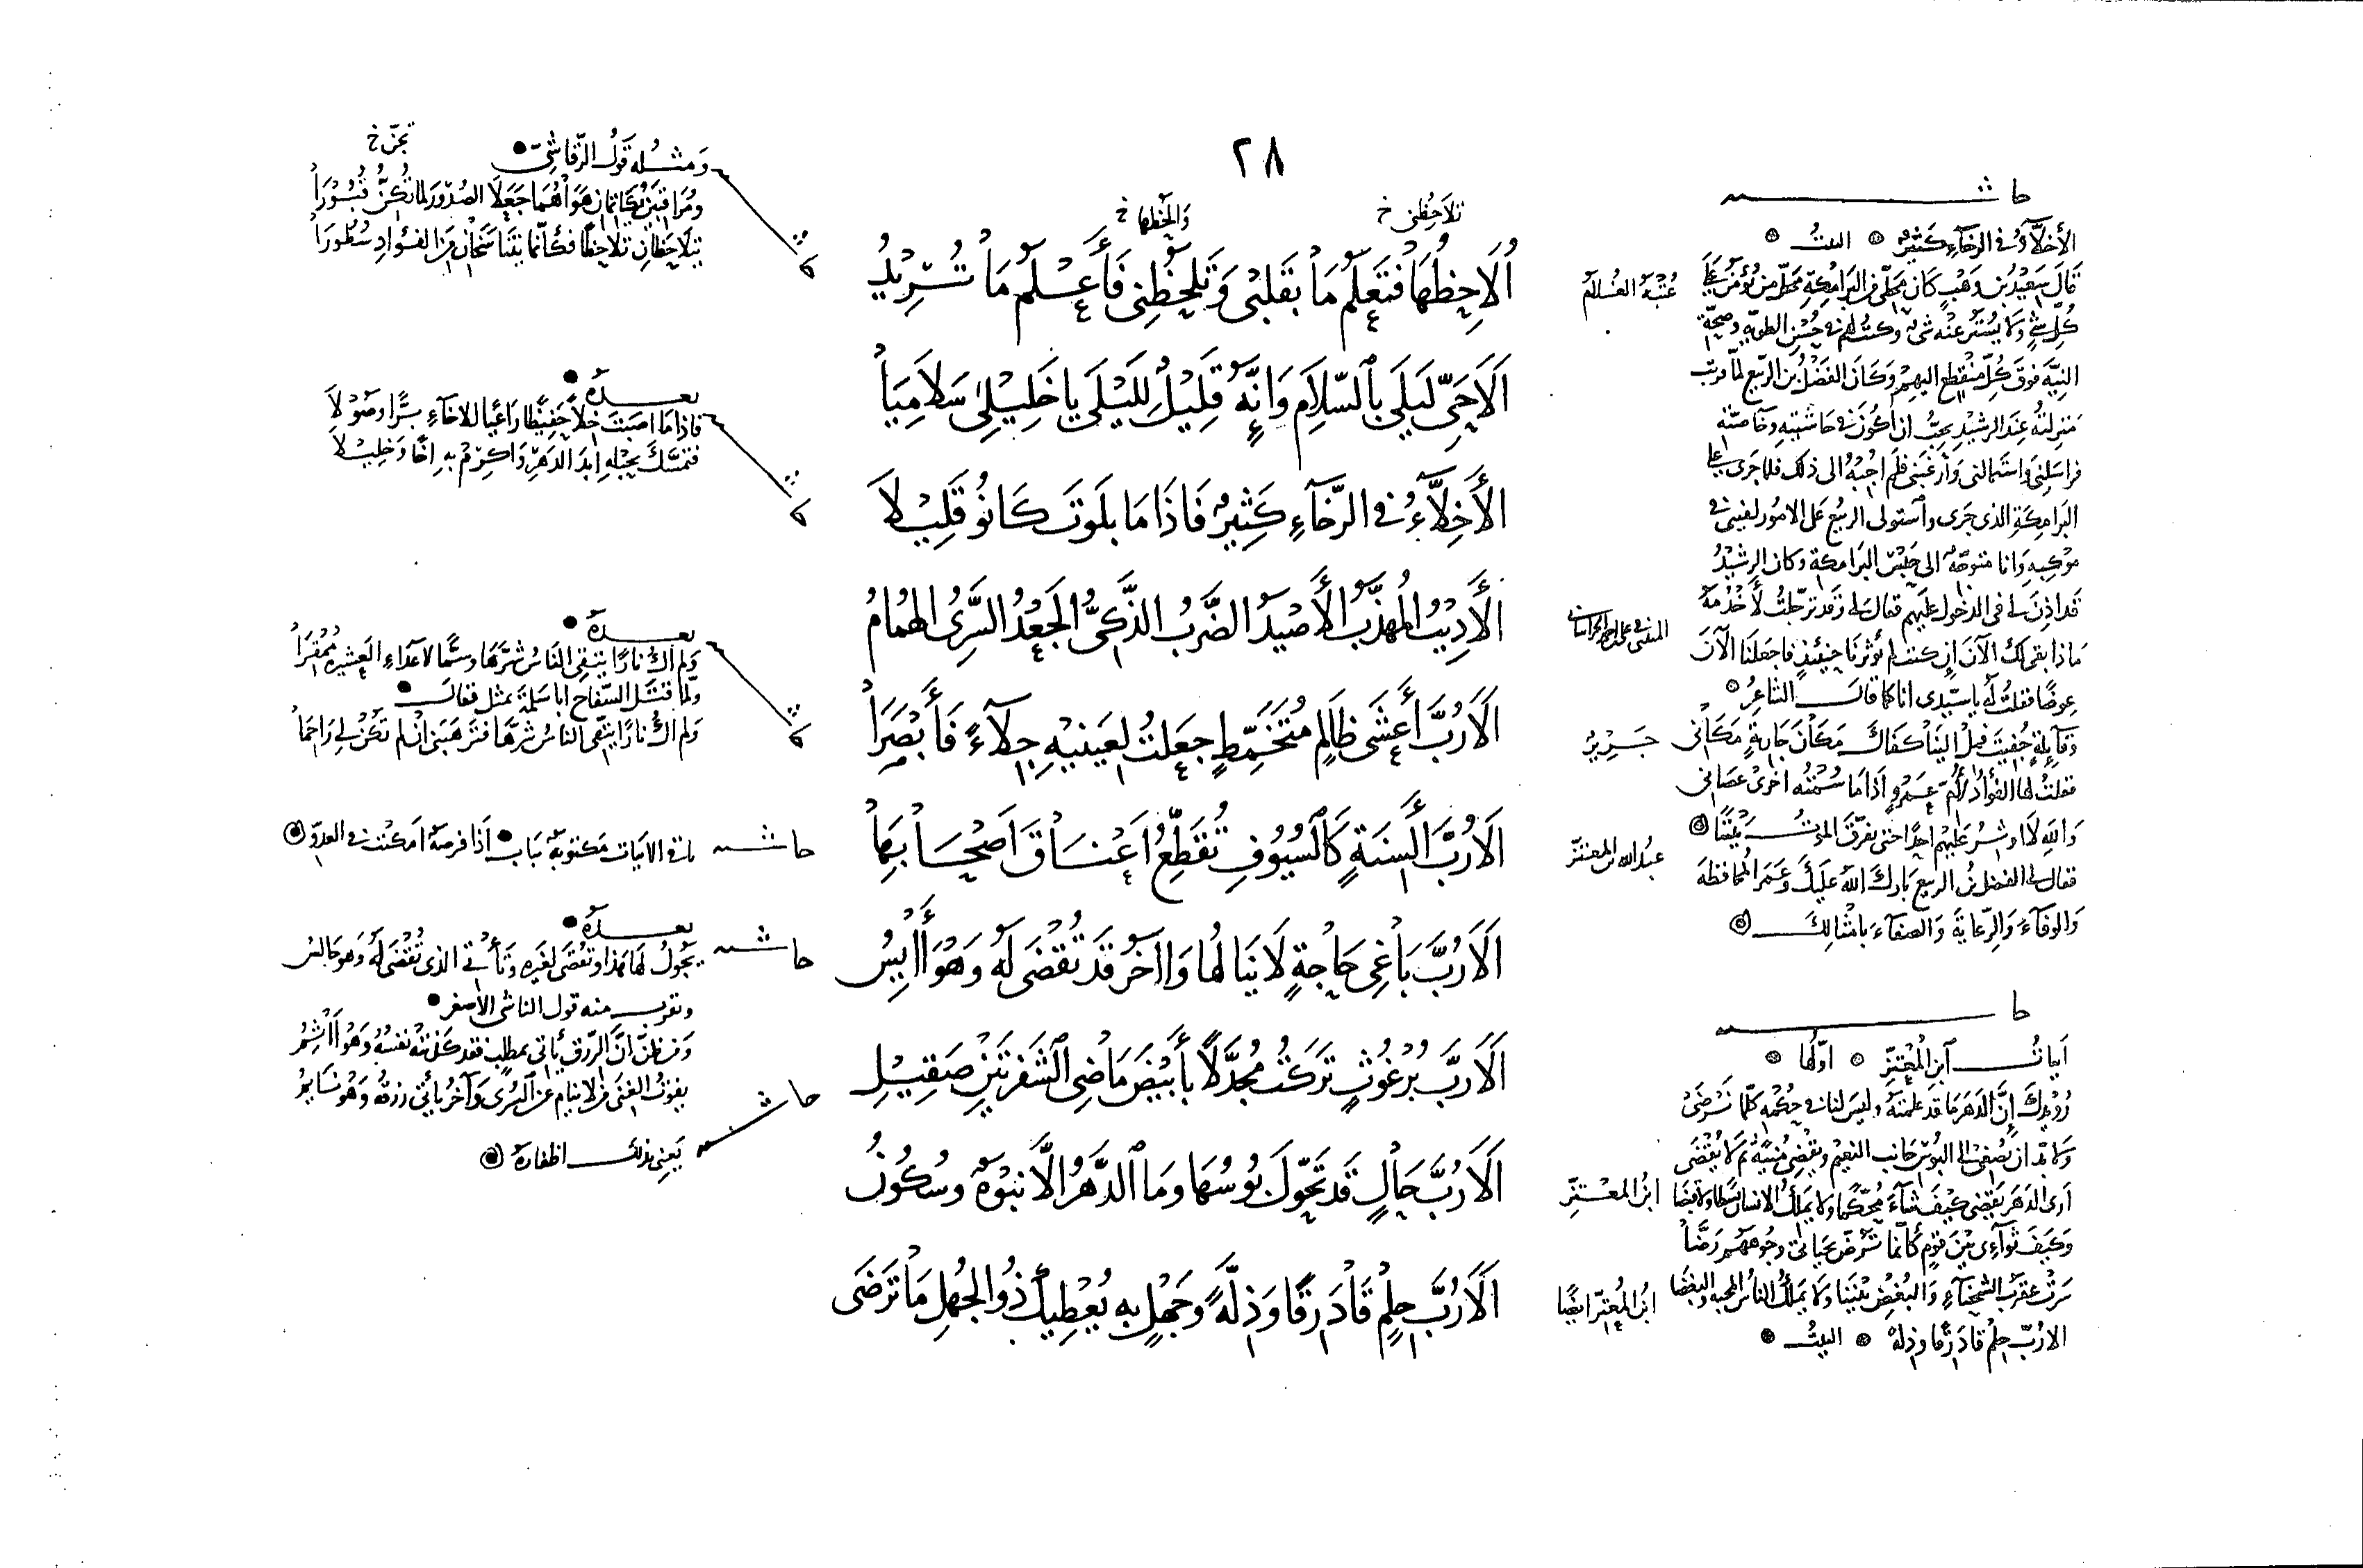 ٢٨
تلاحظنى خ
والحظها خ
أُلَاحِظُهَا فَتَعْلَمُ مَا بِقَلْبِى وَتَلْحَظُنِى فَأَعْلَمُ مَا تُرِيْدُ
أَلَا حَىِّ لَيْلَى بِالسَّلَامِ وَإِنَّهُ قَلِيْلٌ لِلَيْلَى يَا خَلِيْلِى سَلَامِيَا
الأَخِلَّاءُ فى الرَّخَآءِ كَثِيْرٌ فَاذَا مَا بَلَوْتَ كَانُوْ قَلِيْلَا
الأَدِيْبُ المُهَذَّبُ الأَصْيَدُ الضَّرْبُ الذَّكِىُّ الجَعْدُ السَّرِىُّ الهُمَامُ
أَلَا رُبَّ أَعْشَى ظَالِمٍ مُتَخَمِّطٍ جَعَلْتُ لِعَيْنَيْهِ جِلَآءً فَأَبْصَرَا
أَلَا رُبَّ أَلْسِنَةٍ كَالسُّيُوْفِ تُقَطِّعُ أَعْنَاقَ أَصْحَابِهَا
أَلَا رُبَّ بَاغِى حَاجَةٍ لَا يَنَالُهَا وَآخَرَ قَدْ تُقْضَى لَهُ وَهُوَ آيِسُ
أَلَا رُبَّ بُرْغُوْثٍ تَرَكْتُ مُجَدَّلًا بِأَبْيَضَ مَاضِى الشَّفْرَتَيْنِ صَقِيْلِ
أَلَا رُبَّ حَالٍ قَدْ تَحَوَّلَ بُوْسُهَا وَمَا الدَّهْرُ إِلَّا نَبْوَةٌ وَسُكُوْنُ
أَلَا رُبَّ حِلْمٍ قَادَ رِقًّا وَذِلَّةً وَجَهْلٍ بِهِ يُعْطِيْكَ ذُو الجَهْلِ مَا تَرْضَى
حاشــــية
الأخلاء فى الرخآء كثير البيت
قَالَ سَعِيْدُ بن وَهْبٍ كَانَ مَحَلِّى من البرامكة محلّ من يؤمن على
كُلِّ شىٍ ولا يُستر عنه شىء وكنت لهم فى حُسْنِ الطويّه وصحّة
النِيَّة فوق كُلِّ منقطع اليهم وكان الفضل بن الربيع لمّا قربت
منزلته عند الرشيد يحبّ ان اكون فى حاشيته وخاصّته
فراسلنى واستمالنى وارغبنى فلم اجبه الى ذلك فلما جرى على
البرامكة الذى جرى واستولى الربيع على الامور لقينى فى
موكبه وانا متوجّه الى حبْس البرامكة وكان الرشيد
قد اذن لى فى الدخول عليهم فقال لى وقد ترجّلت لأخدمه
ماذا بقى لك الآن إن كنت لم تؤثرنا حينئذٍ فاجعلنا الآن
عوضًا فقلت له ياسيّدى انا كما قال الشاعر
وقآيلةٍ جُفيت فمل الينا كفاك مكان جارية مكانى
فقلت لها الفؤاد لأمّ عمرو اذا ما سمته اخرى عصانى
والله لا اوثر عليهم احدًا حتى يفرّق الموت بيننا
فقال لى الفضل بن الربيع بارك الله عليك وعمر المحافظة
والوفآء والرّعاية والصفآء بامثالك
عتبة الغلام
جَــرِيْر
عبد الله بن المعتز
ابن المعتز
ابن المعتز ايضًا
حا
أبيات ابن المعتز أوّلها
رُوَيْدك إنّ الدهر ما قد علمته وليس لنا فى حكمه كلّما نرضَى
ولا بدّ ان يُصغى الى البؤس جانب النعيم ويقضى منيّة ثم لا يُقضَى
أرى الدهر يقضى كيف شآء محكّما ولا يملك الانسان بسطا ولا قبضا
وكيف ثوآءى بين قوم كأنما ترضّ بحياتى وجوههم رضّا
سرت عقرب الشحنآء والبغض بيننا ولا يملك الناس المحبة والبغضا
الا ربّ حلم قاد رقّا وذلة البيت
ومثــله قول الرقاشىّ
تجنّ خ
ومراقبين يكاتمان هواهما جعلا الصدور لما تُكنّ قبورا
يتلاحظان تلاحظًا فكأنما يتناسخان من الفؤاد سطورا
بعــده
فاذا ما اصبت خلّا حفيظا راعيا للاخآء برًّا وصولا
فتمسّك بحبله ابد الدهر واكرم به اخًا وخليلا
بعــده
ولم اك نارًا يتقى الناس شرّها وسمّا لاعدآء العشيرة ممقرا
ولمّا قتــل السّفاح ابا سلمة تمثل فقال
ولم اك نارًا يتقى الناس شرّها فترهبنى ان لم تكن لى راحما
حاشــية باقى الابيات مكتوبة بباب اذا فرصة امكنت فى العدوّ
حاشــية
بعــده
يجول لها هذا وتقضى لغيره وتأتى الذى تقضى له وهو جالس
ويقرب منه قول الناشى الأصغر
ومن ظنّ انّ الرزق يأتى بمطلب فقد كذبته نفسه وهو آثم
يفوت الغنى من لا ينام عن السرى وآخر يأتى رزقه وهو نايم
حاشــية يعنى بذلك اظفاره